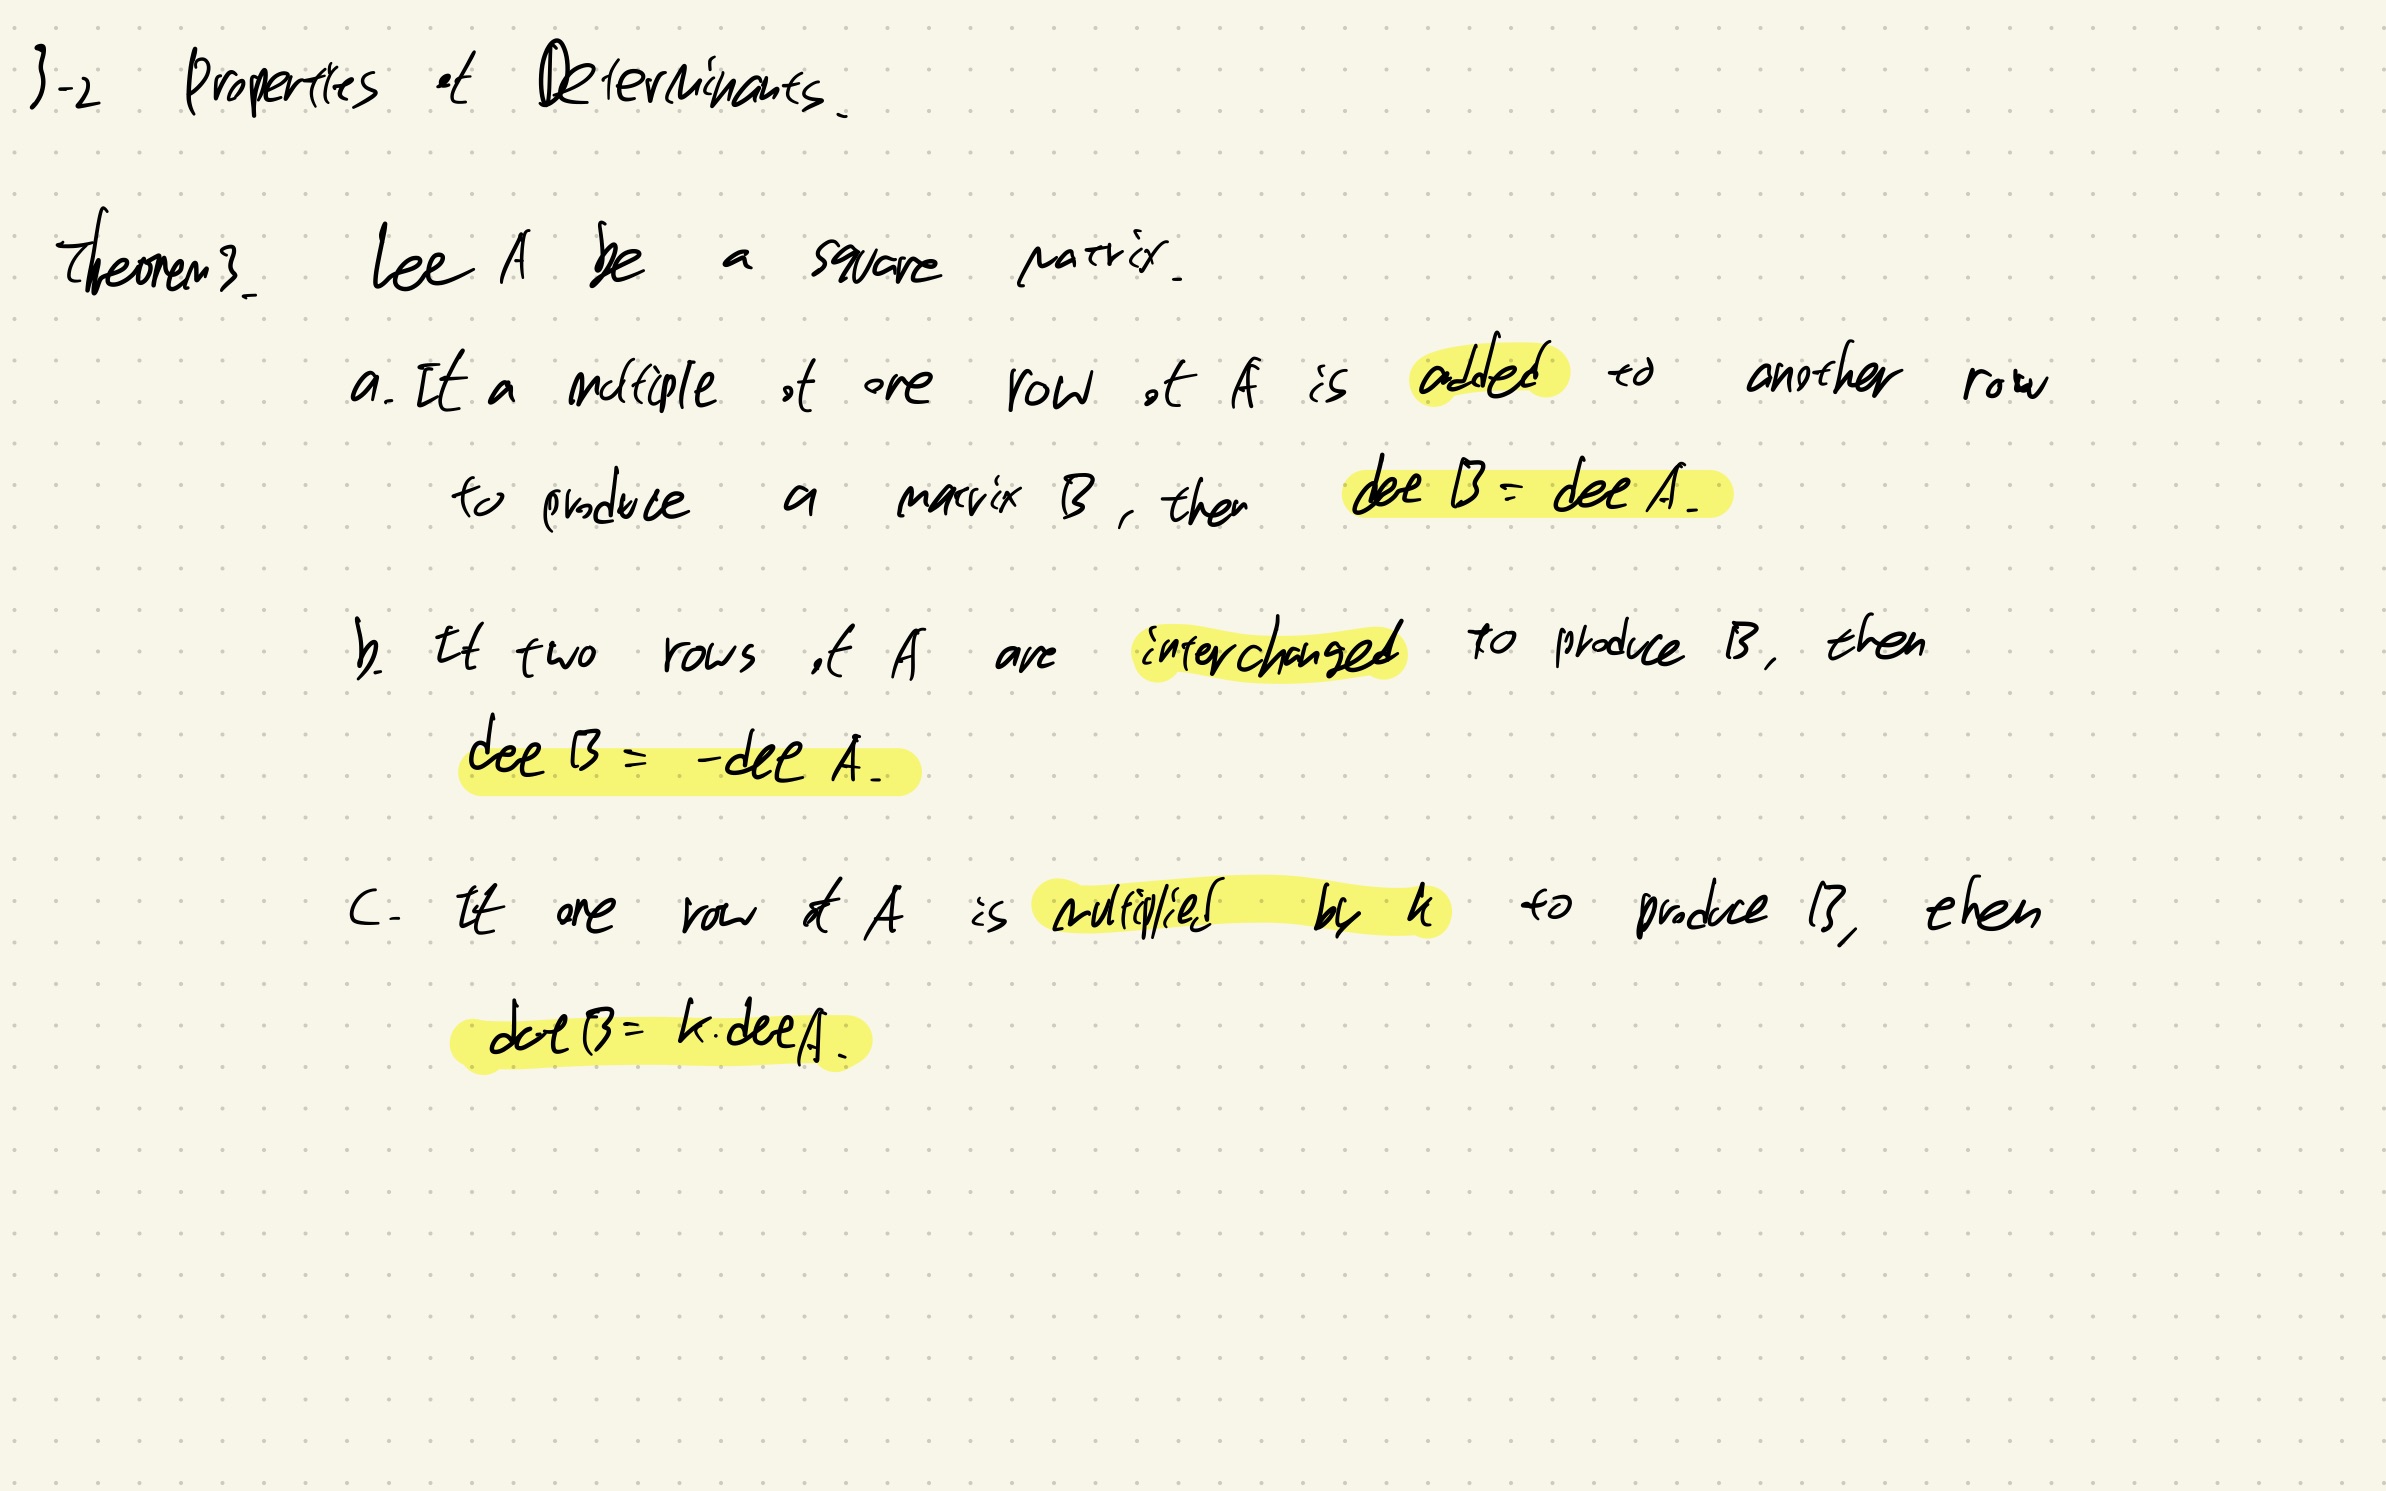 3-2 Properties of Determinants.
Theorem 3. Let A be a square matrix.
a. If a multiple of one row of A is added to another row
to produce a matrix B, then det B = det A.
b. If two rows of A are interchanged to produce B, then
det B = -det A.
c. If one row of A is multiplied by k to produce B, then
det B = k·det A.